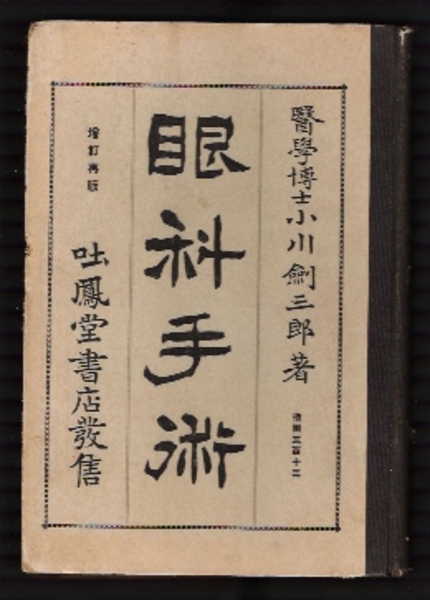 醫學博士小川劍三郎著
插圖三百十三
眼科手術
增訂再版
吐鳳堂書店發售